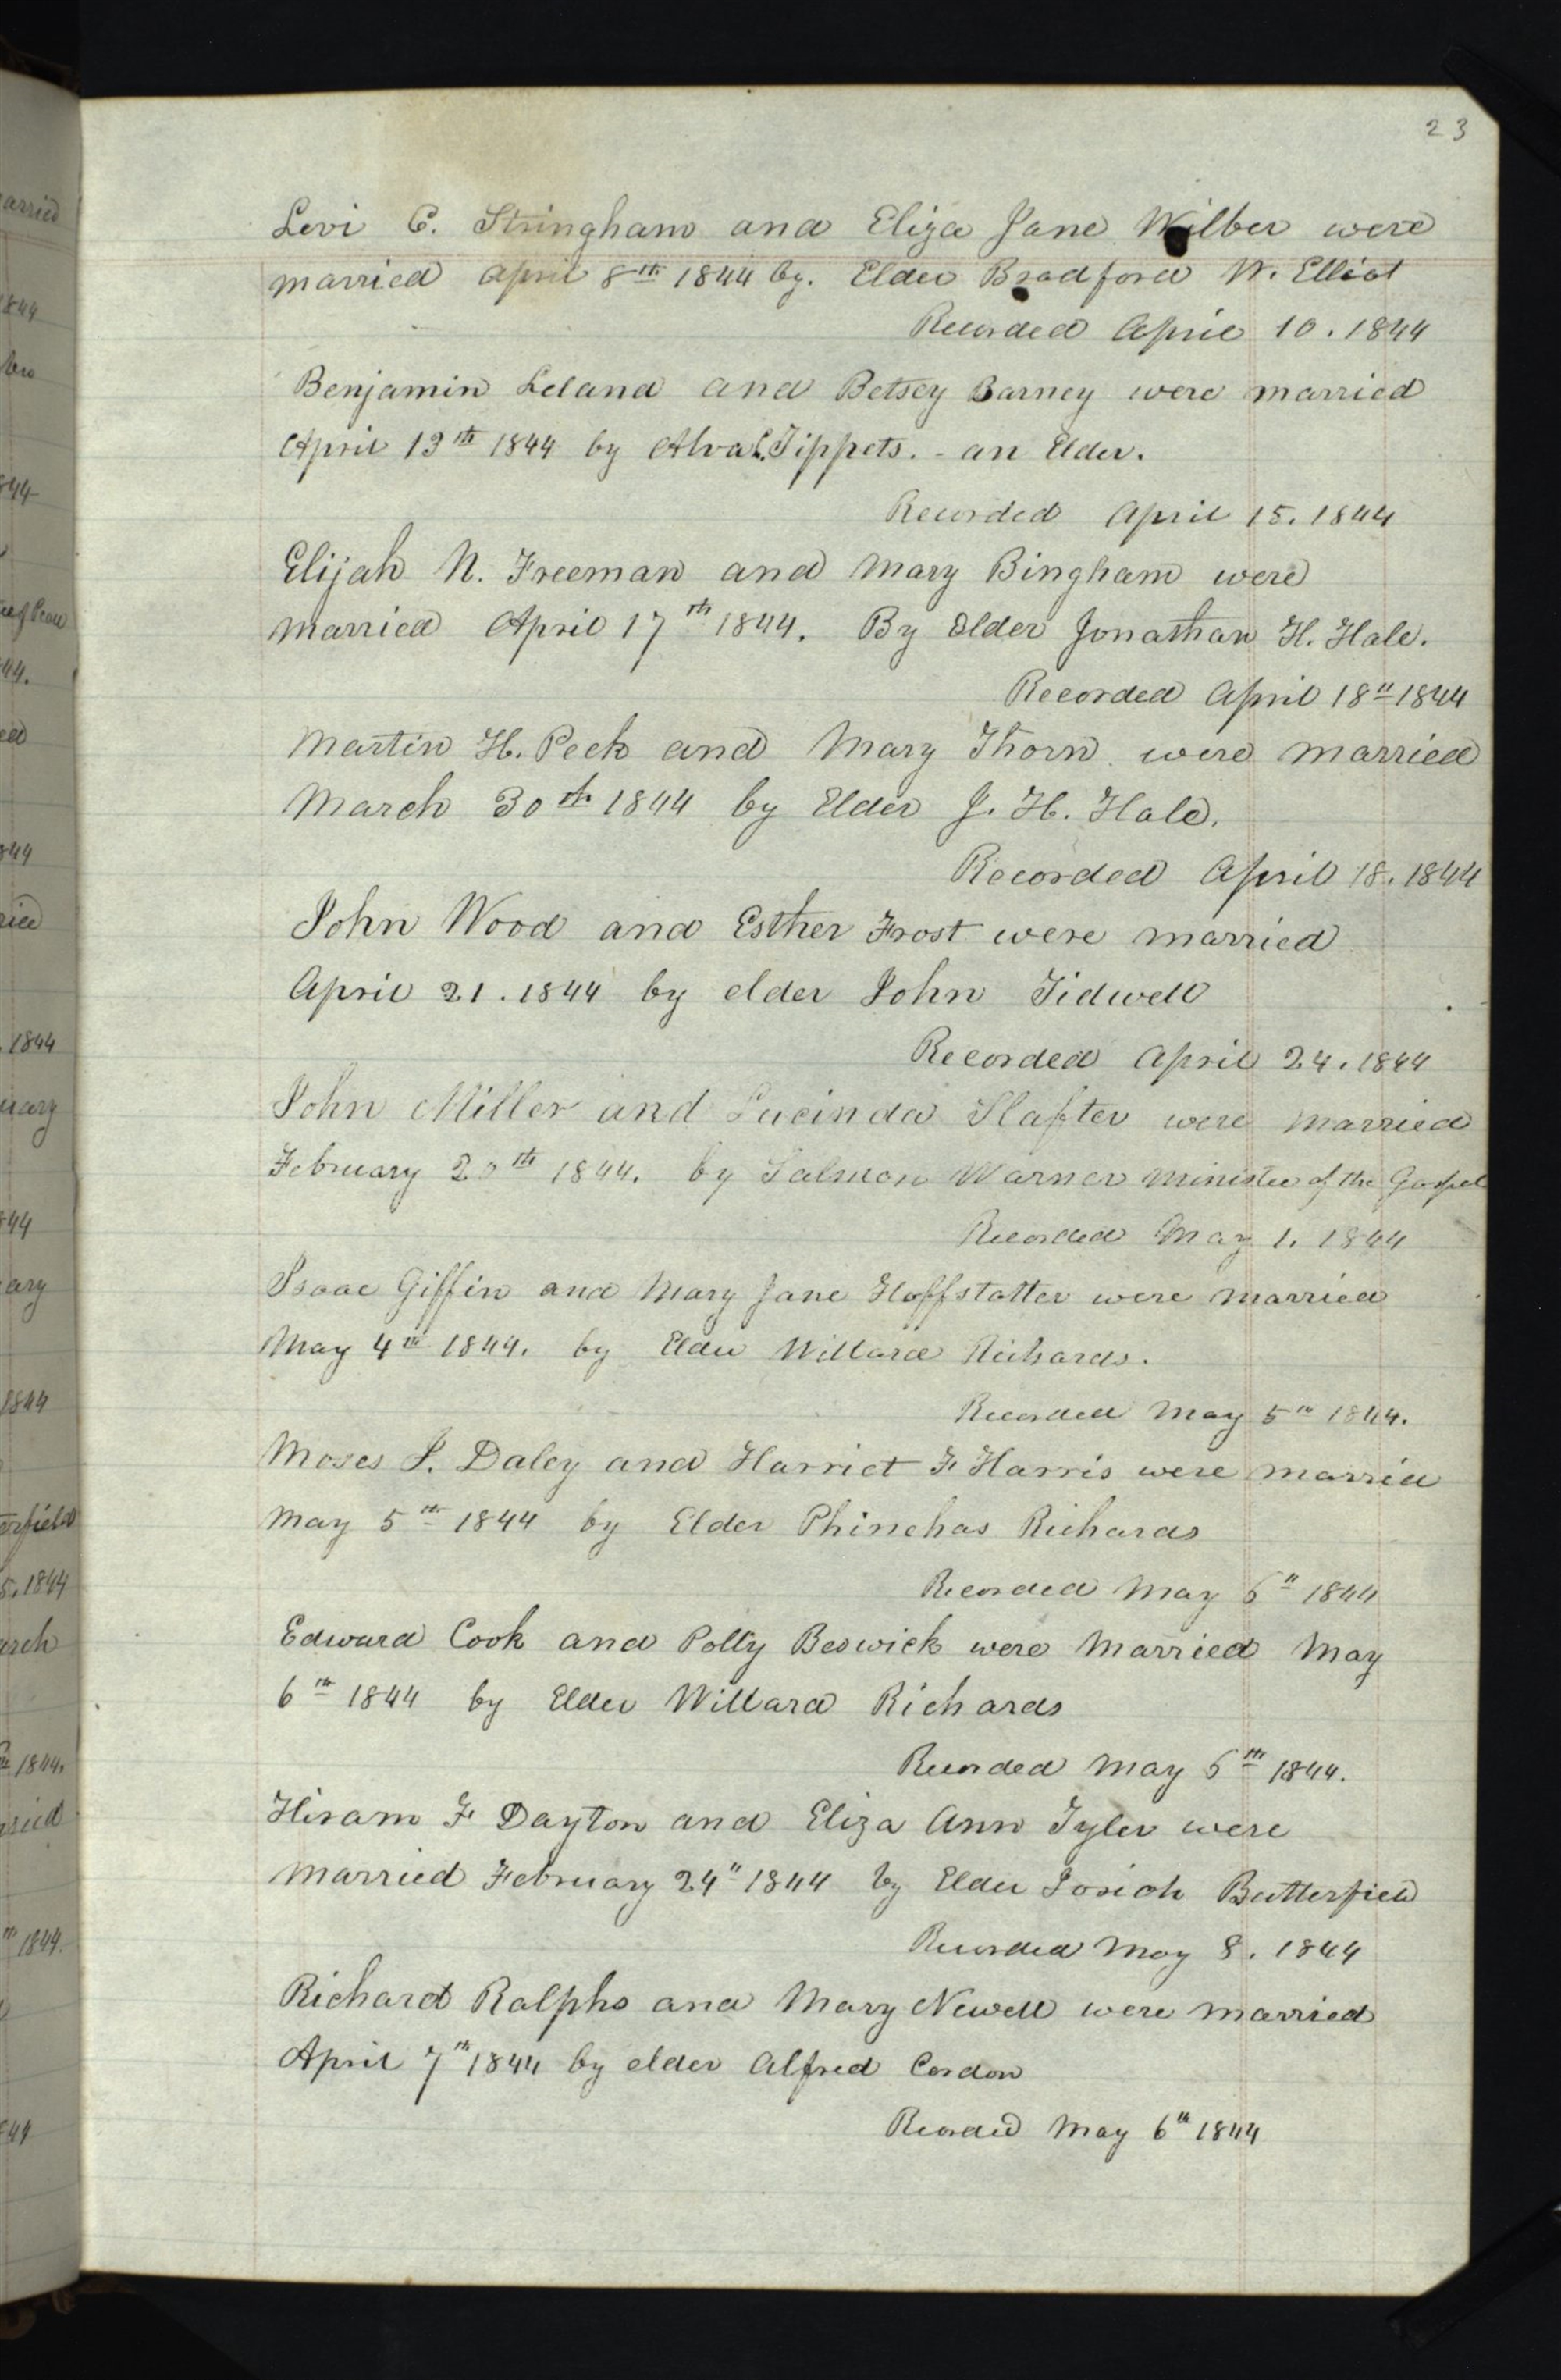 23
Levi C. Stringham and Eliza Jane Wilber were
married April 8th 1844 by. Elder Bradford W. Elliot
Recorded April 10. 1844
Benjamin Leland and Betsey Barney were married
April 13th 1844 by Alva L. Tippets. - an Elder.
Recorded April 15. 1844
Elijah N. Freeman and Mary Bingham were
married April 17th 1844. By Elder Jonathan H. Hale.
Recorded April 18" 1844
Martin H. Peck and Mary Thorn were married
March 30th 1844 by Elder J. H. Hale.
Recorded April 18. 1844
John Wood and Esther Frost were married
April 21. 1844 by elder John Tidwell
Recorded April 24. 1844
John Miller and Lucinda Slafter were married
February 20th 1844. by Salmon Warner minister of the Gospel
Recorded May 1. 1844
Isaac Giffin and Mary Jane Hoffstatter were married
May 4th 1844. by Elder Willard Richards.
Recorded May 5th 1844.
Moses J. Daley and Harriet F Harris were married
May 5th 1844 by Elder Phinehas Richards
Recorded May 6" 1844
Edward Cook and Polly Beswick were Married May
6th 1844 by Elder Willard Richards
Recorded May 6th 1844.
Hiram F Dayton and Eliza Ann Tyler were
married February 24" 1844 by Elder Josiah Butterfield
Recorded May 8. 1844
Richard Ralphs and Mary Newell were married
April 7th 1844 by elder Alfred Cordon
Recorded May 6th 1844